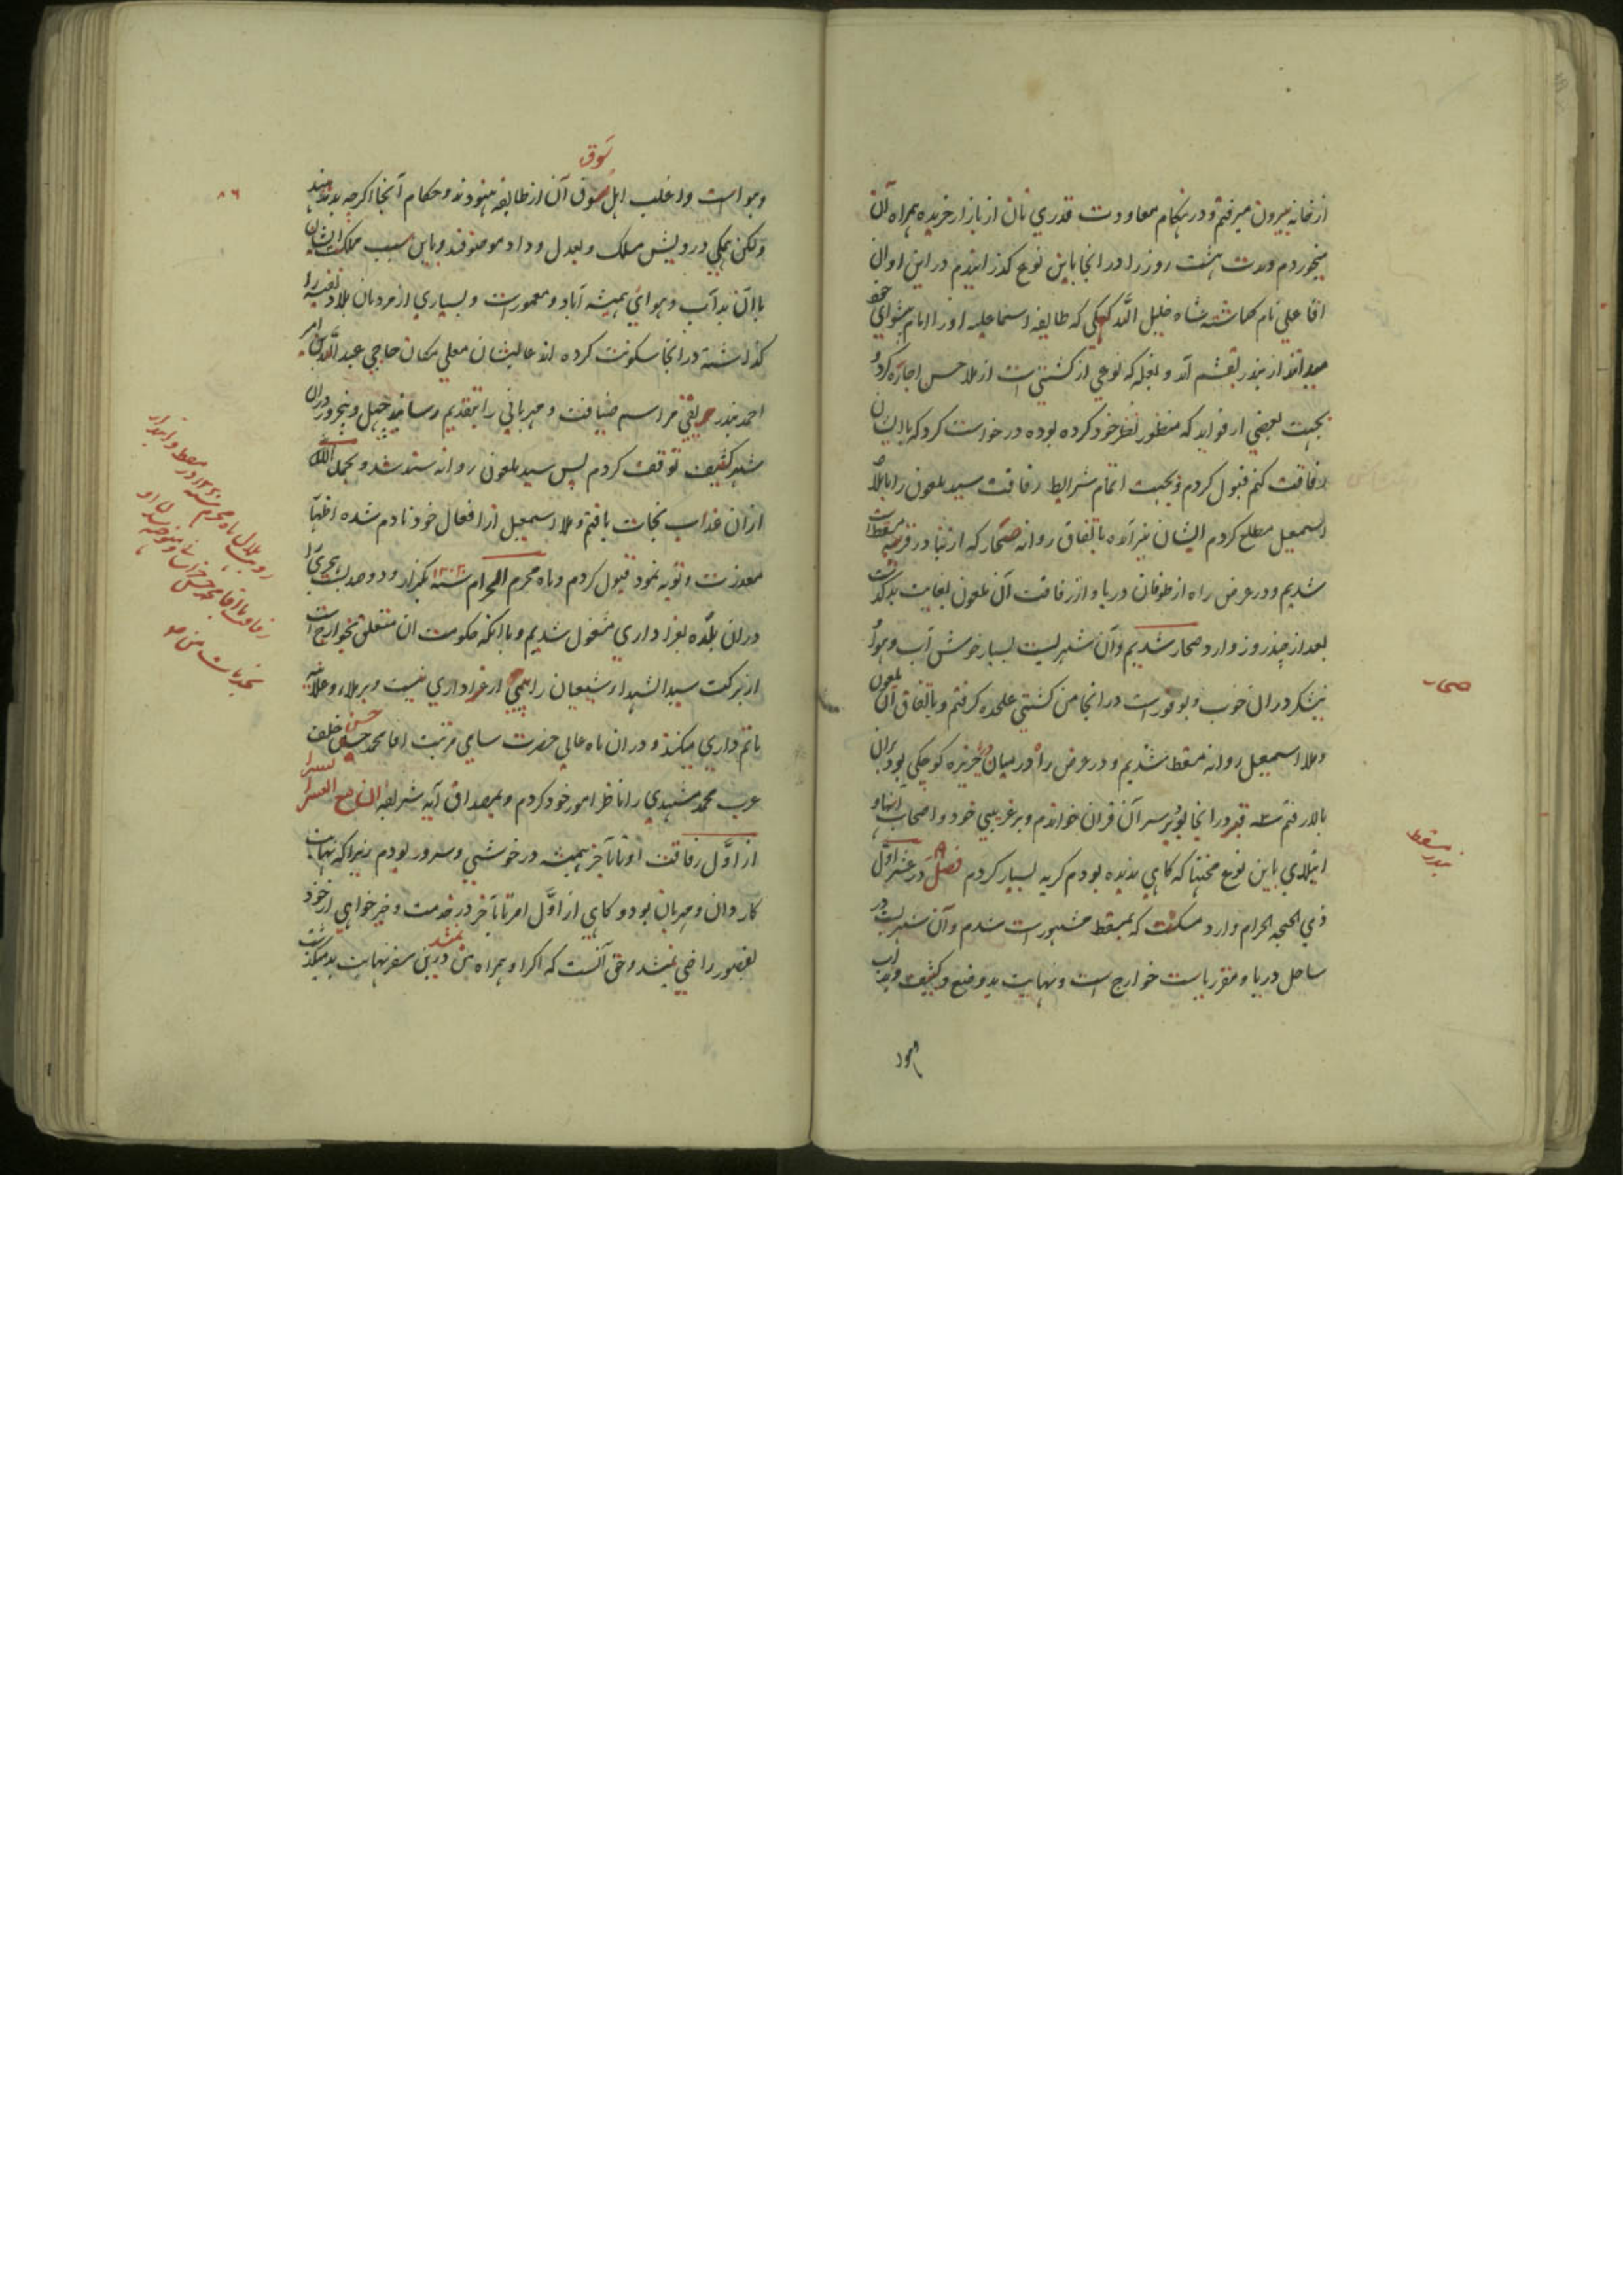 از خانه بیرون میرفتم و در هنگام معاودت قدری نان از بازار خریده همراه آن
میخوردم و مدت هشت روز را در انجا باین نوع گذرانیدم در این اوان
اقا علی نام کماشته شاه خلیل الله کهکی که طایفه اسماعلیه او را امام پیشوای خود
میدانند از بندر بقشم آمد و بغله که نوعی از کشتی است از ملا حسن اجاره کرد و
بجهت بعضی از فواید که منظور نظر خود کرده بوده درخواست کرد که با ایشان
رفاقت کنم قبول کردم و بجهت اتمام شرایط رفاقت سید ملعون را با ملا
اسمعیل مطلع کردم ایشان نیز آمده باتفاق روانه صحار که از بنادر قریبه مسقط است
شدیم و در عرض راه از طوفان دریا و از رفاقت آن ملعون بغایت بد گذشت
بعد از چند روز وارد صحار شدیم و آن شهریست بسیار خوش آب و هوا
نیشکر در ان خوب و بوفور است در انجا من کشتی علحده کرفتم و باتفاق آن ملعون
و ملا اسمعیل روانه مسقط شدیم و در عرض راه در میان دریا جزیره کوچکی بود بران
بالا رفتم سه قبر در انجا بود بر سر آن قران خواندم و بر غریبی خود و اصحاب انها و
ابتلای باین نوع محنتها که کاهی ندیده بودم کریه بسیار کردم فصل در عشر اول
ذی الحجه الحرام وارد مسکت که بمسقط مشهور است شدم و آن شهریست در
ساحل دریا و مقر ریاست خوارج است و نهایت بد وضع و کثیف و بد آب
و هوا
صحار
بندر مسقط
سوق
۸۶
و هواست و اغلب اهل سوق آن از طایفه هنودند و حکام آنجا اکرچه بد مذهبند
ولکن همکی درویش مسلک و بعدل و داد موصوفند و باین سبب مملکت ایشان
با آن بد آب و هوائی همیشه آباد و معمور است و بسیاری از مردمان بلاد نفیسه را
کذاشته در انجا سکونت کرده اند عالیشان معلی مکان حاجی عبدالله بن امیر
احمد بندر مراسم ضیافت و مهربانی را بتقدیم رسانید چهل و پنجروز دران
شهر کثیف توقف کردم پس سید ملعون روانه سند شد و بحمد الله
از ان عذاب نجات یافتم و ملا اسمعیل از افعال خود نادم شده اظهار
معذرت و توبه نمود قبول کردم و ماه محرم الحرام سنه ۱۲۲۰ یکهزار و دوصد بیست هجری را
دران بلده بعزاداری مشغول شدیم و با اینکه حکومت ان متعلق بخوارج است
از برکت سید الشهدا شیعیان را بیمی از عزاداری نیست و برملا و علانیه
ماتم داری میکنند و دران ماه عالی حضرت سامی مرتبت اقا محمد حسن خلف
عرب محمد مشهدی را ناظر امور خود کردم و بمصداق آیه شریفه ان مع العسر یسرا
از اول رفاقت او تا بآخر همیشه در خوشی و سرور بودم زیرا که نهایت
کاردان و مهربان بود و کاهی از اول امر تا بآخر در خدمت و خیر خواهی از خود
بقصور راضی نمیشد و حق آنست که اکر او همراه من نمیشد درین سفر نهایت بد میکذشت
رویت هلال ماه محرم سنه ۱۲۲۰ در مسقط و ابتدای
رفاقت با اقا محمد حسن خراسانی و متوجه شدن او
بخدمات من